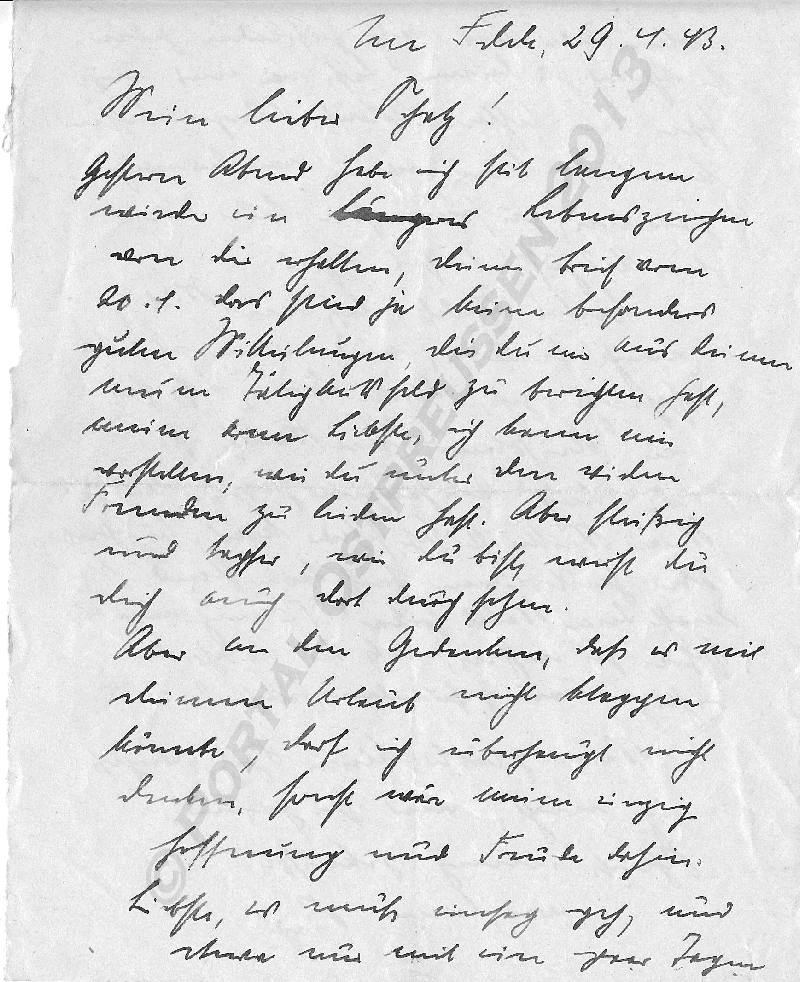 Im Felde, 29.1.43.
Mein lieber Schatz!
Gestern Abend habe ich seit langem
wieder ein längeres Lebenszeichen
von dir erhalten, deinen Brief vom
20.1. das sind ja keine besonders
guten Mitteilungen, die du mir aus deinem
neuen Tätigkeitsfeld zu berichten hast,
meine arme Liebste, ich kann mir
vorstellen, wie du unter den vielen
Fremden zu leiden hast. Aber fleißig
und tapfer, wie du bist, wirst du
dich auch dort durchsetzen.
Aber an den Gedanken, daß es mit
deinem Urlaub nicht klappen
könnte, darf ich überhaupt nicht
denken, sonst wäre meine einzige
Hoffnung und Freude dahin.
Liebste, es muß einfach geh, und
etwa nur mit ein paar Tagen
© PORTAL-OSTPREUSSEN 2013